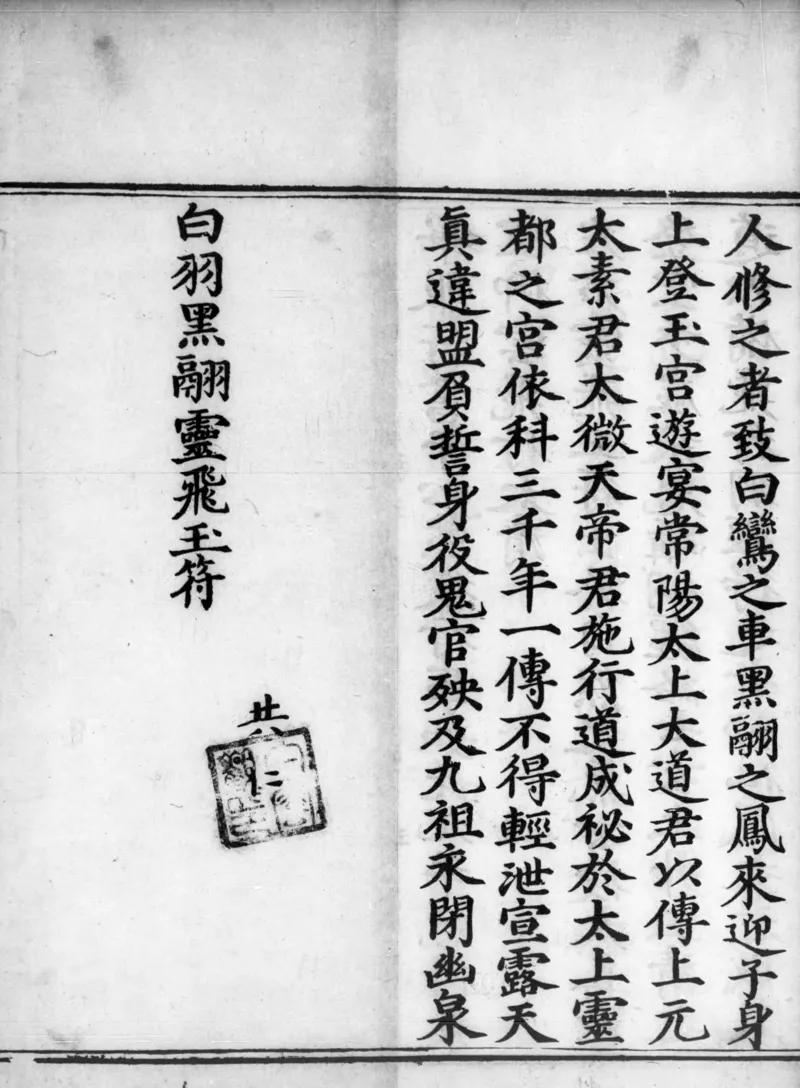 人修之者致白鸞之車黑翮之鳳來迎子身
上登玉宮遊宴常陽太上大道君以傳上元
太素君太微天帝君施行道成祕於太上靈
都之宮依科三千年一傳不得輕泄宣露天
眞違盟負誓身役鬼官殃及九祖永閉幽泉
白羽黑翮靈飛玉符
共
仁